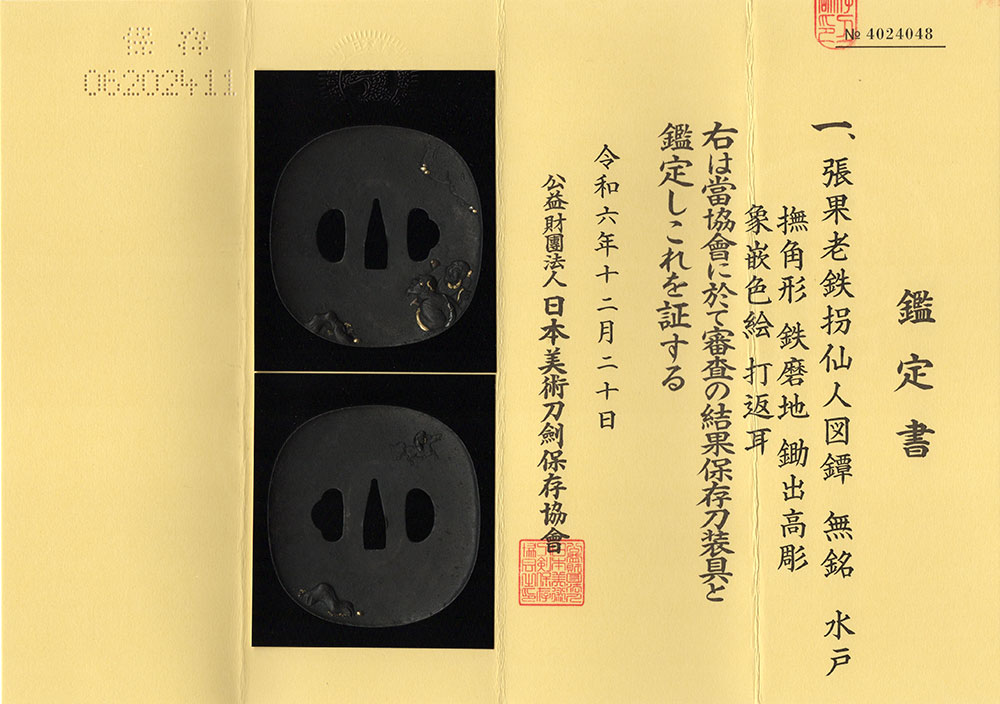 № 4024048
鑑定書
一、張果老鉄拐仙人図鐔 無銘 水戸
撫角形 鉄磨地 鋤出高彫
象嵌色絵 打返耳
右は當協會に於て審査の結果保存刀装具と
鑑定しこれを証する
令和六年十二月二十日
公益財團法人 日本美術刀劍保存協會
保存
06202411